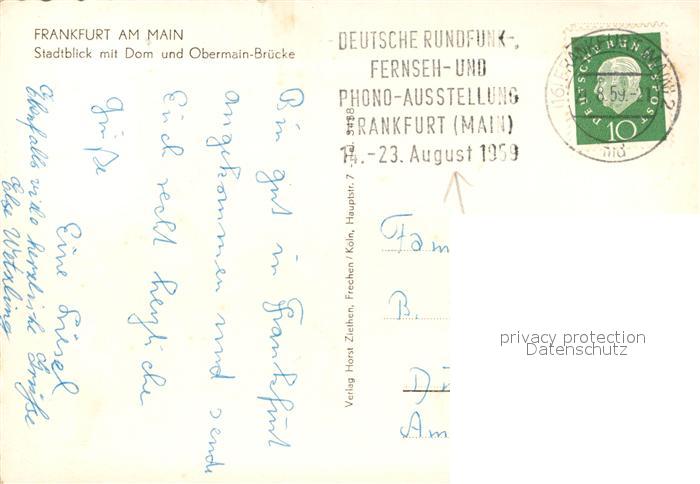 FRANKFURT AM MAIN
Stadtblick mit Dom und Obermain-Brücke
DEUTSCHE RUNDFUNK-,
FERNSEH- UND
PHONO-AUSSTELLUNG
FRANKFURT (MAIN)
14.-23. August 1959
DEUTSCHE BUNDESPOST
10
Bin gut in Frankfurt
angekommen und sende
Euch recht herzliche
Grüße
Eure Liesel
Ebenfalls viele herzliche Grüße
Else
Verlag Horst Ziethen, Frechen/Köln, Hauptstr. 7
Fam
B.
Am
privacy protection
Datenschutz